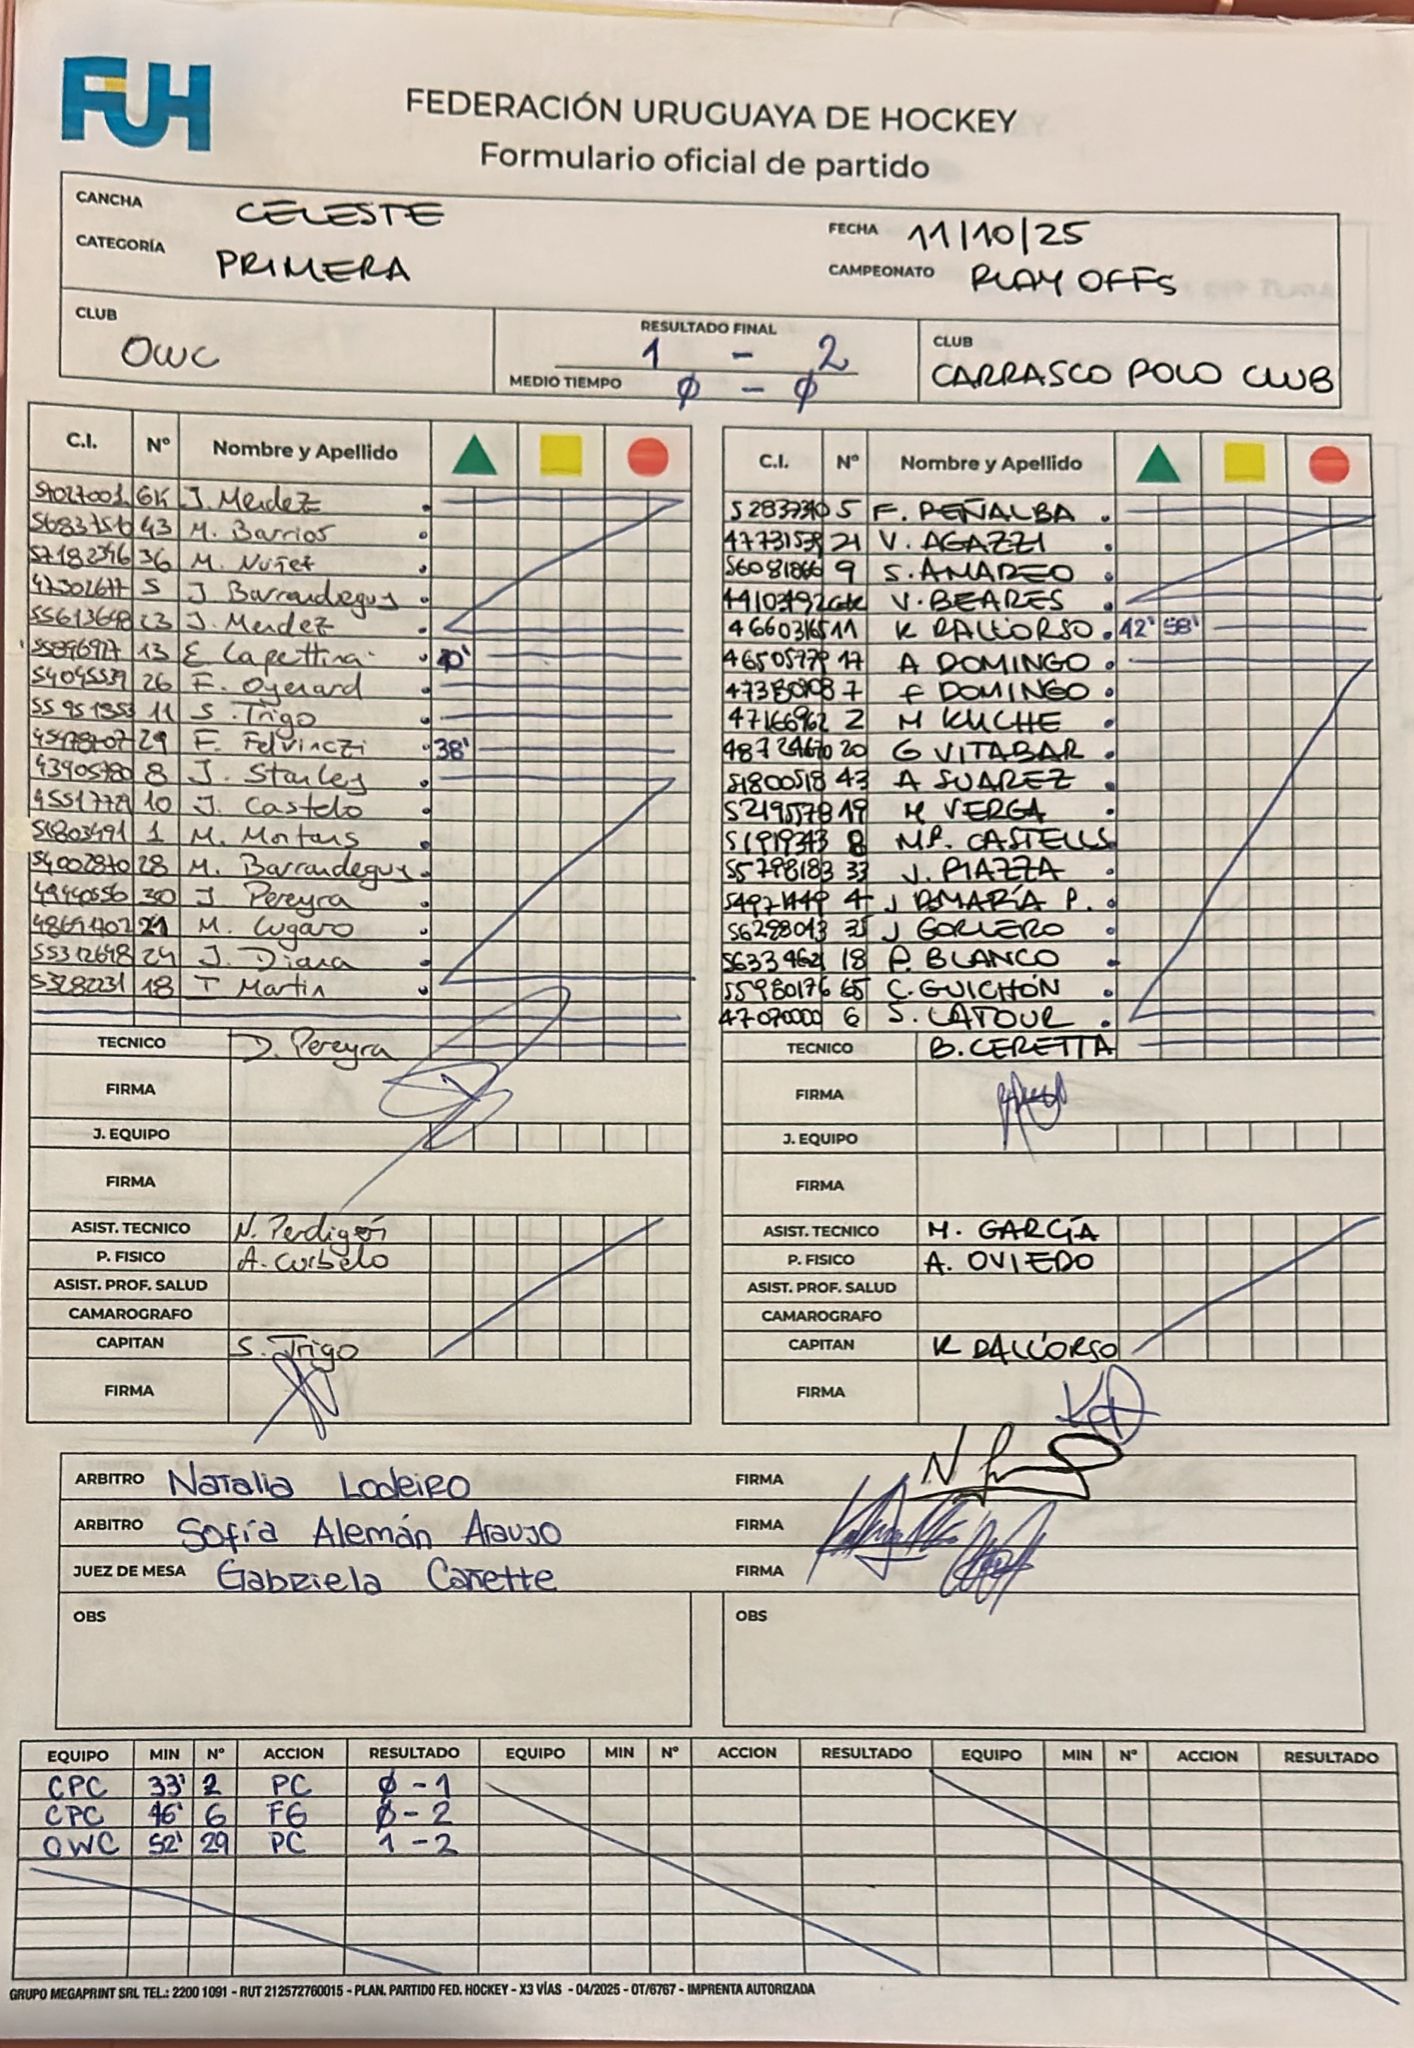 FUH
FEDERACIÓN URUGUAYA DE HOCKEY
Formulario oficial de partido
CANCHA CELESTE FECHA 11/10/25
CATEGORÍA PRIMERA CAMPEONATO PLAY OFFS
CLUB OWC RESULTADO FINAL 1 - 2 CLUB CARRASCO POLO CLUB
MEDIO TIEMPO Ø - Ø
C.I. Nº Nombre y Apellido
J. Mendez
43 M. Barrios
36 M. Nuñez
5 J Barrandeguy
23 J. Mendez
13 E Capettina 40'
26 F. Oyenard
11 S. Trigo
29 F. Felvinczi 38'
8 J. Stanley
10 J. Castelo
1 M. Martans
28 M. Barrandeguy
30 J Pereyra
21 M. Lugaro
24 J. Diana
18 T Martin
TECNICO D. Pereyra
FIRMA
J. EQUIPO
FIRMA
ASIST. TECNICO N. Perdigón
P. FISICO A. Curbelo
ASIST. PROF. SALUD
CAMAROGRAFO
CAPITAN S. Trigo
FIRMA
C.I. Nº Nombre y Apellido
5 F. PEÑALBA
21 V. AGAZZI
9 S. AMADEO
GK V. BEARES
11 K DALL'ORSO 42' 58'
17 A DOMINGO
7 F DOMINGO
47166962 2 M KUCHE
20 G VITABAR
51800518 43 A SUAREZ
19 M VERGA
51919343 8 MP. CASTELLS
55798183 33 J. PIAZZA
4 J DOMARÍA P.
56298043 35 J GORLERO
18 P. BLANCO
55980176 65 C. GUICHÓN
47070000 6 S. LATOUR
TECNICO B. CERETTA
FIRMA
J. EQUIPO
FIRMA
ASIST. TECNICO M. GARCÍA
P. FISICO A. OVIEDO
ASIST. PROF. SALUD
CAMAROGRAFO
CAPITAN K DALL'ORSO
FIRMA
ARBITRO Natalia Lodeiro FIRMA
ARBITRO Sofía Alemán Araujo FIRMA
JUEZ DE MESA Gabriela Canette FIRMA
OBS OBS
EQUIPO MIN Nº ACCION RESULTADO EQUIPO MIN Nº ACCION RESULTADO EQUIPO MIN Nº ACCION RESULTADO
CPC 33' 2 PC Ø - 1
CPC 46' 6 FG Ø - 2
OWC 52' 29 PC 1 - 2
GRUPO MEGAPRINT SRL TEL.: 2200 1091 - RUT 212572760015 - PLAN. PARTIDO FED. HOCKEY - X3 VÍAS - 04/2025 - OT/6767 - IMPRENTA AUTORIZADA